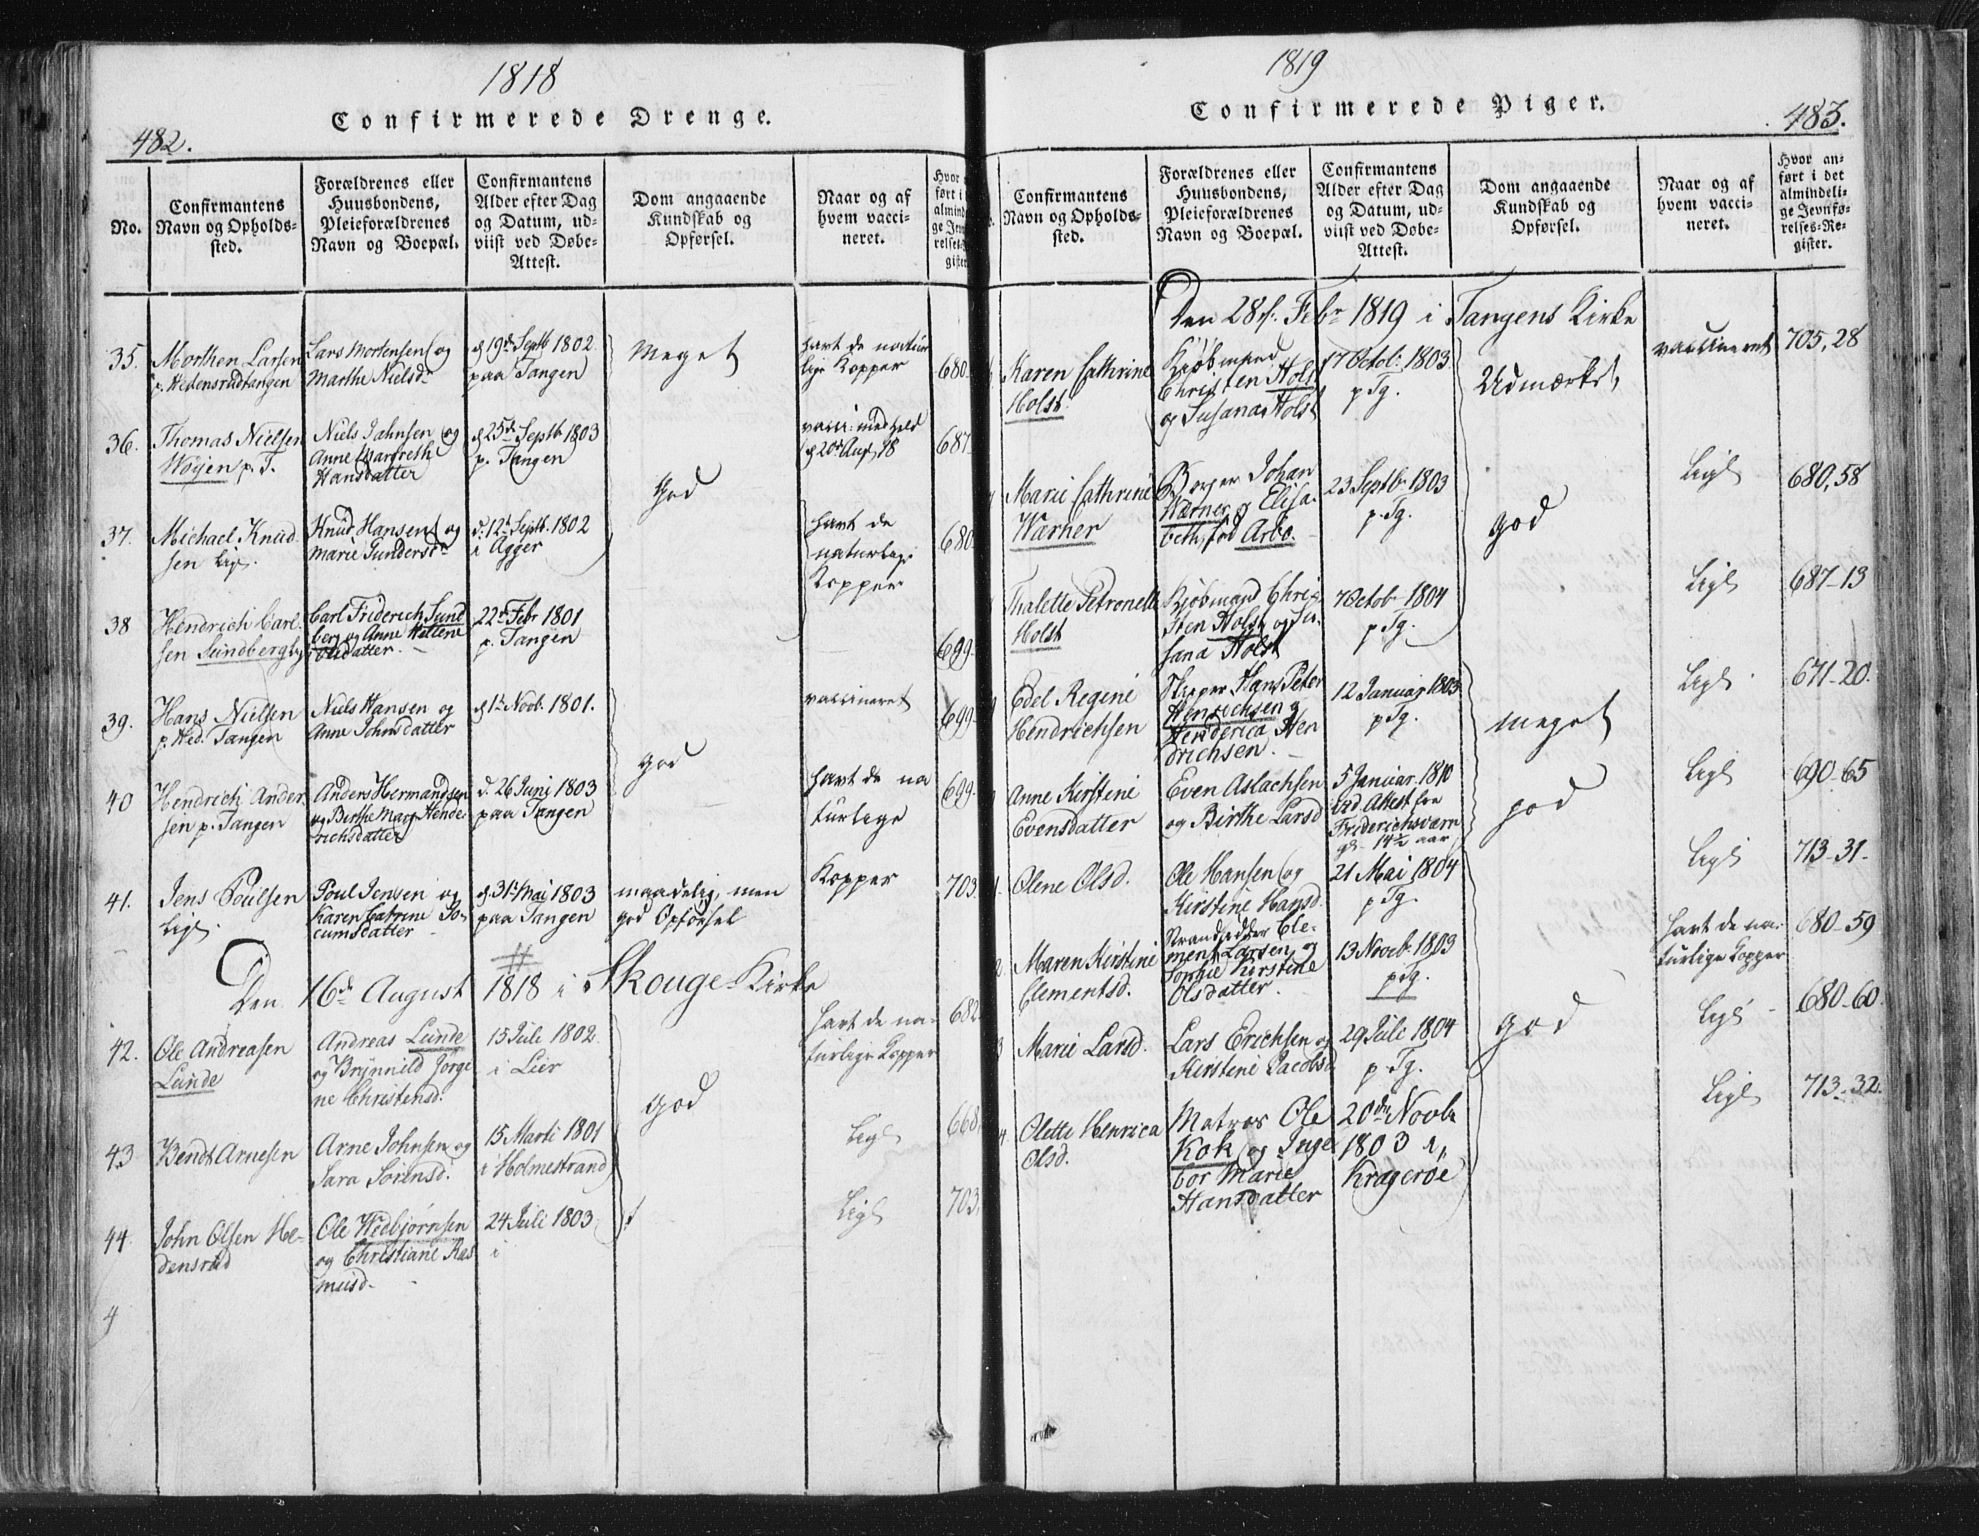 1818
Confirmerede Drenge.
482.
No.
Confirmantens
Navn og Opholds-
sted.
Forældrenes eller
Huusbondens,
Pleieforældrenes
Navn og Boepæl.
Confirmantens
Alder efter Dag
og Datum, ud-
viist ved Døbe-
Attest.
Dom angaaende
Kundskab og
Opførsel.
Naar og af
hvem vacci-
neret.
35.
Morthen Larsen
p. Hedensrudtangen
Lars Mortensen og
Marthe Nielsdr
d 19de Septb 1802
paa Tangen
Meget
havt de natur
lige Kopper
680
36.
Thomas Nielsen
Wøyen p. T.
Niels Jahnsen og
Anne Margreth
Hansdatter
d 25de Septb 1803
p. Tangen
God
687
37.
Michael Knud
sen Ligl.
Knud Hansen og
Marie Gundersdr
d. 12te Septb. 1802
i Agger
havt de
naturlige
Kopper
680
38
Hendrich Carl
sen Sundberg
Carl Friderich Sund
berg og Anne Hellene
Olsdatter.
22de Febr 1801
p. Tangen
699
39.
Hans Nielsen
p. Hed. Tangen
Niels Hansen og
Anne Johnsdatter
d 1te Novb. 1801.
vaccineret
699
40
Hendrich Ander
sen p. Tangen
Anders Hermandsen
og Birthe Marg Hende
richsdatter
d. 26 Juni 1803
paa Tangen
god
havt de na
turlige
699
41.
Jens Poulsen
Ligl.
Poul Jensen og
Karen Catrine Jo-
cumsdatter
d 31te Mai 1803
paa Tangen
maadelig, men
god Opførsel
Kopper
703
Den 16de August 1818 i Skouge Kirke
42.
Ole Andreasen
Lunde
Andreas Lunde
og Brynnild Jørge
ne Christensd.
15 Juli 1802
i Lier
god
havt de na-
turlige Kopper
682
43
Bendt Arnesen
Arne Johnsen og
Sara Sørensd.
15 Marti 1801
i Holmestrand
Ligl
668
44.
John Olsen He-
densrud
Ole Wedbjørnsen
og Christiane Ras
musd.
24 Juli 1803
i
Ligl
703
4
1819
Confirmerede Piger.
483.
Confirmantens
Navn og Opholds-
sted.
Forældrenes eller
Huusbondens,
Pleieforældrenes
Navn og Boepæl.
Confirmantens
Alder efter Dag
og Datum, ud-
viist ved Døbe-
Attest.
Dom angaaende
Kundskab og
Opførsel.
Naar og af
hvem vacci-
neret.
Hvor an-
ført i det
almindeli-
ge Jevnfø-
relses-Re-
gister.
Den 28de Febr 1819 i Tangens Kirke
Karen Cathrine
Holst
Kjøbmand
Christen Holst
og Susana Holst
17 Octob. 1803
p Tg.
Udmærket,
vaccineret
705, 28
Marie Cathrine
Warner
Borger Johan
Warner og Elisa-
beth, fød Arbo.
23 Septbr 1803
p. Tg.
god
Ligl
680, 58
Thalette Petronelle
Holst
Kjøbmand Chri-
sten Holst og Su-
sana Holst
7 Octob 1804
p Tg.
Ligl
687-13
Edel Regine
Hendrichsen
Skipper Hans Peter
Henrichsen og
Hendrica Hen
drichsen.
12 Januar 1803
p Tg.
meget
Ligl.
671-20.
Anne Kirstine
Evensdatter
Even Aslachsen
og Birthe Larsd
5 Januar. 1810
ved Attest fra
Friderichsværn
gl. 14½ aar
god
Ligl
690-65
Olene Olsd.
Ole Hansen og
Kirstine Hansd.
21 Mai 1804
p Tg.
Ligl
713-31-
Maren Kirstine
Clementsd.
Strandsidder Cle-
ment Larsen og
Sophie Kirstine
Olsdatter.
13 Novb. 1803
p Tg.
havt de na-
turlige Kopper
680-59
Marie Larsd.
Lars Erichsen og
Kirstine Jacobsd
29 Juli 1804
p Tg.
god
Ligl
680-60.
Olette Henrica
Olsd.
Matros Ole
Kok og Inge
bor Marie
Hansdatter
20de Novbr
1803 i
Kragerøe
Ligl
713-32.